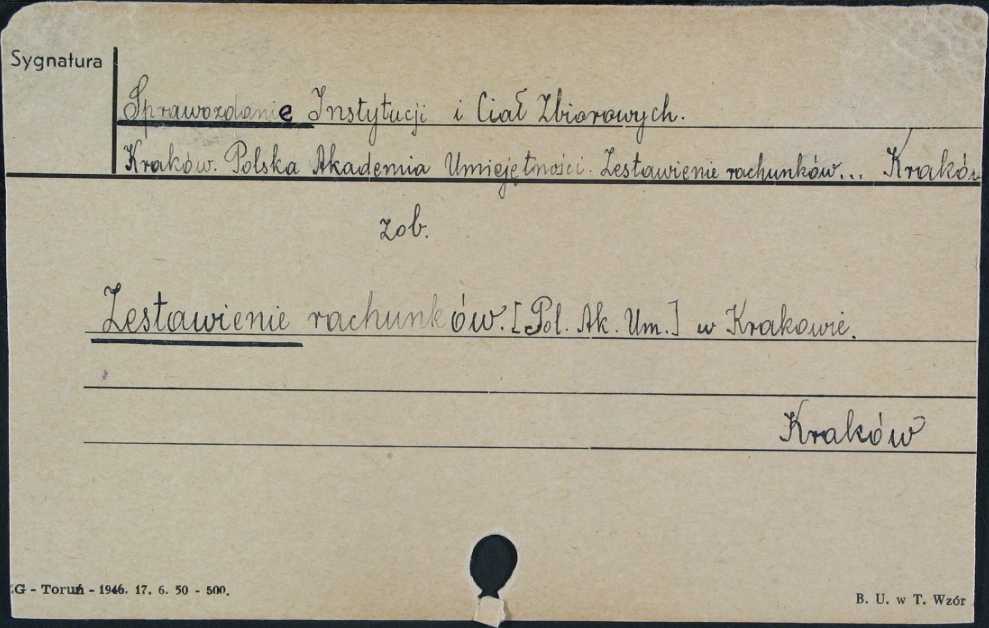 Sygnatura
Sprawozdanie Instytucji i Ciał Zbiorowych.
Kraków. Polska Akademia Umiejętności. Zestawienie rachunków... Kraków
zob.
Zestawienie rachunków. [Pol. Ak. Um.] w Krakowie.
Kraków
G - Toruń - 1946. 17. 6. 50 - 500.
B. U. w T. Wzór